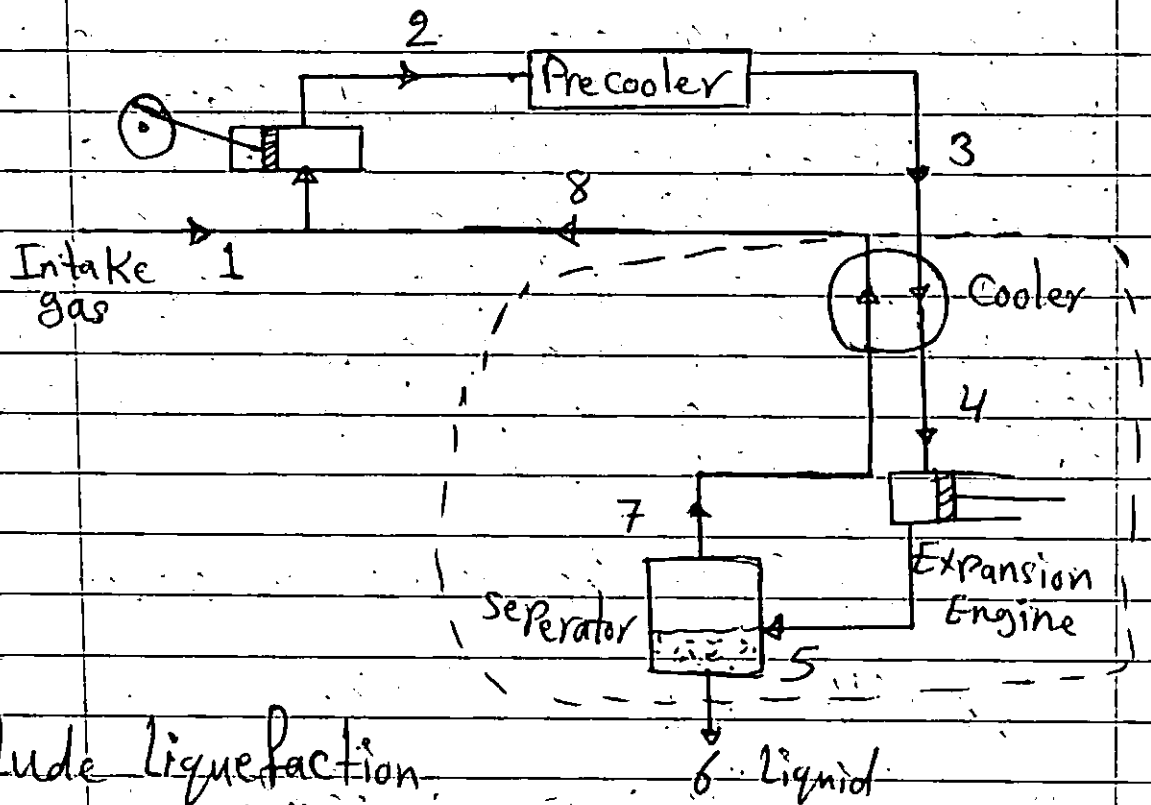 2
Precooler
3
8
Intake 1
gas
Cooler
4
7
Expansion
Engine
Seperator
5
lude Liquefaction
6 Liquid